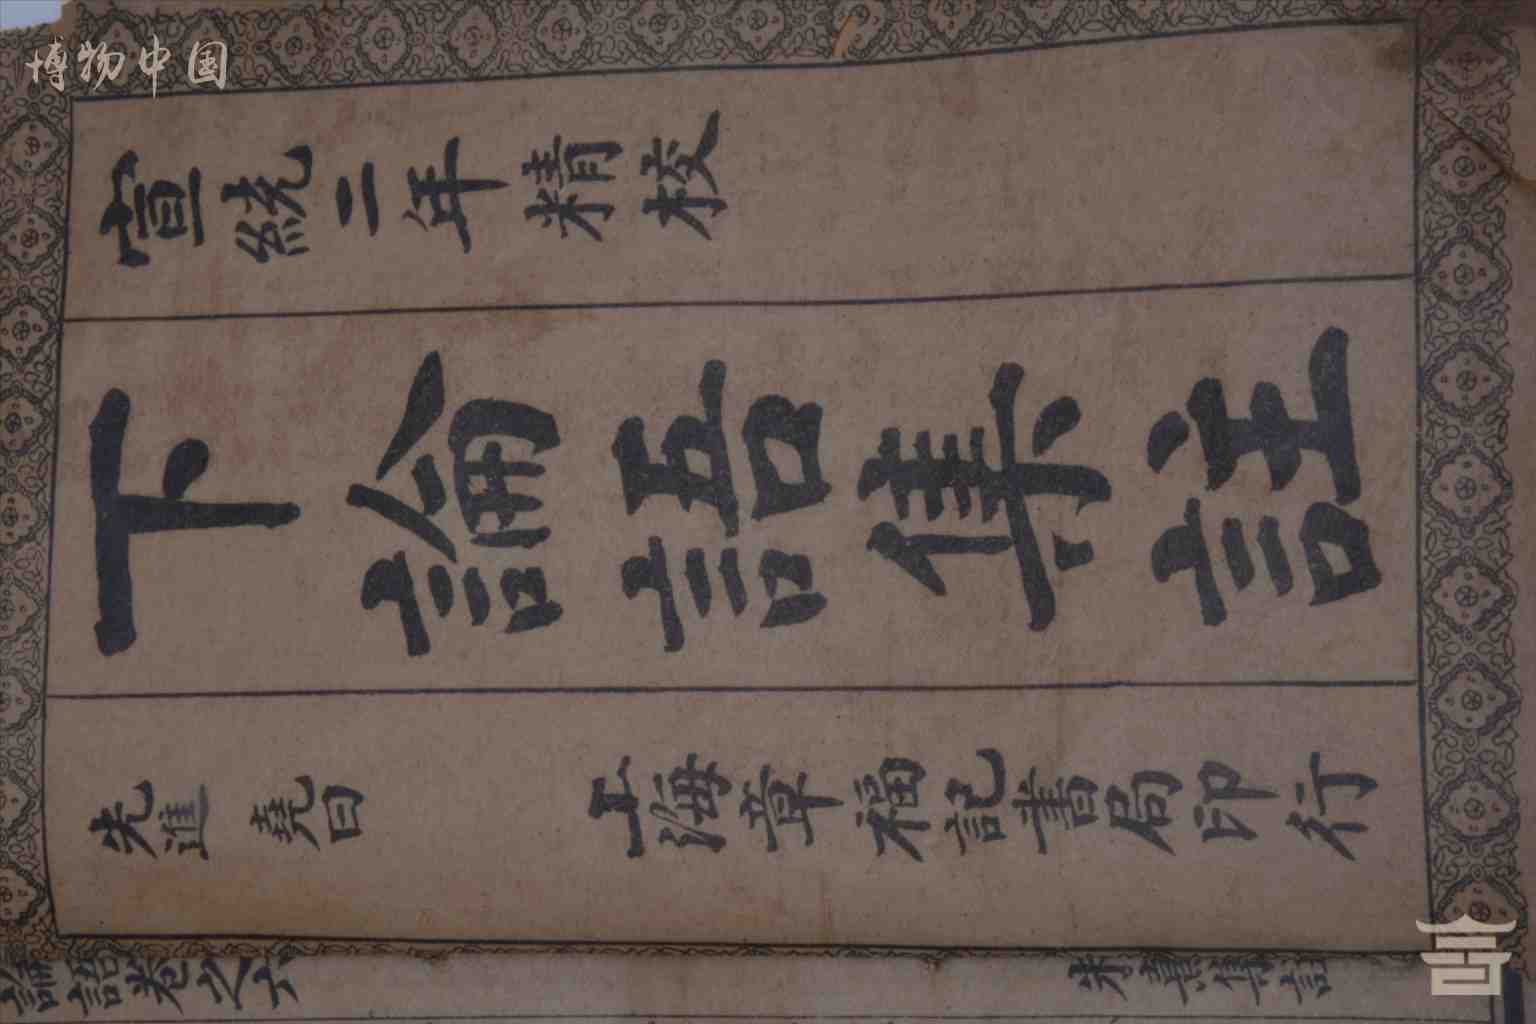 博物中国
宣統二年精校
下論語集註
先進 堯曰 上海章福記書局印行
論語卷之六 朱熹集註